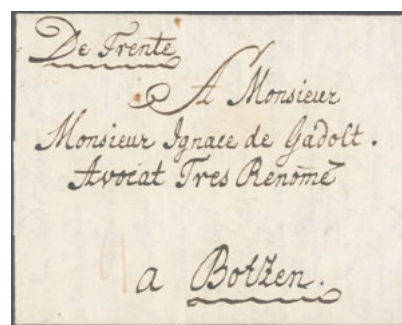 De Trente
A Monsieur
Monsieur Ignace de Gadolt.
Avocat Tres Renomē
a Botzen.